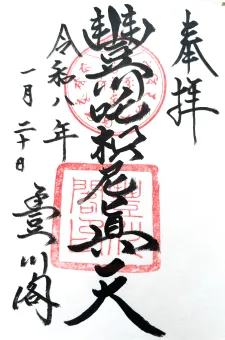 奉拝
豐川吒枳尼真天
令和八年
一月二十日
豊川閣